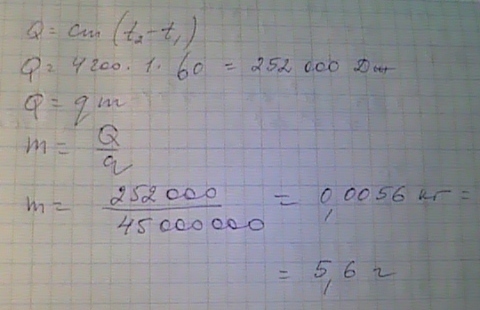 Q = cm (t₂ - t₁)
Q = 4200 · 1 · 60 = 252 000 Дж
Q = q m
m = Q/q
m = 252 000/45 000 000 = 0,0056 кг =
= 5,6 г